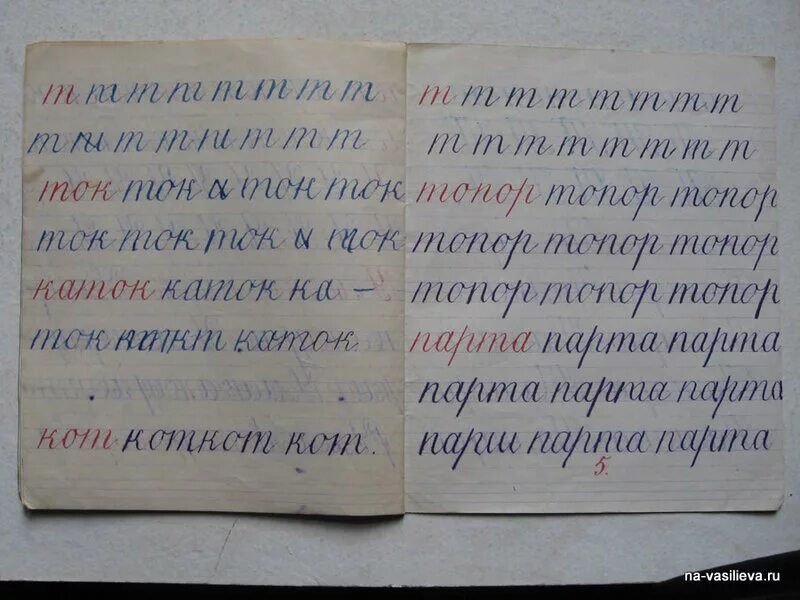 т т т т т т т т
т т т т т т т т
ток ток и ток ток
ток ток ток и ток
каток каток ка –
ток каток.
кот кот кот кот.
т т т т т т т т
т т т т т т т т
топор топор топор
топор топор топор
топор топор топор
парта парта парта
парта парта парта
парти парта парта
5.
na-vasilieva.ru